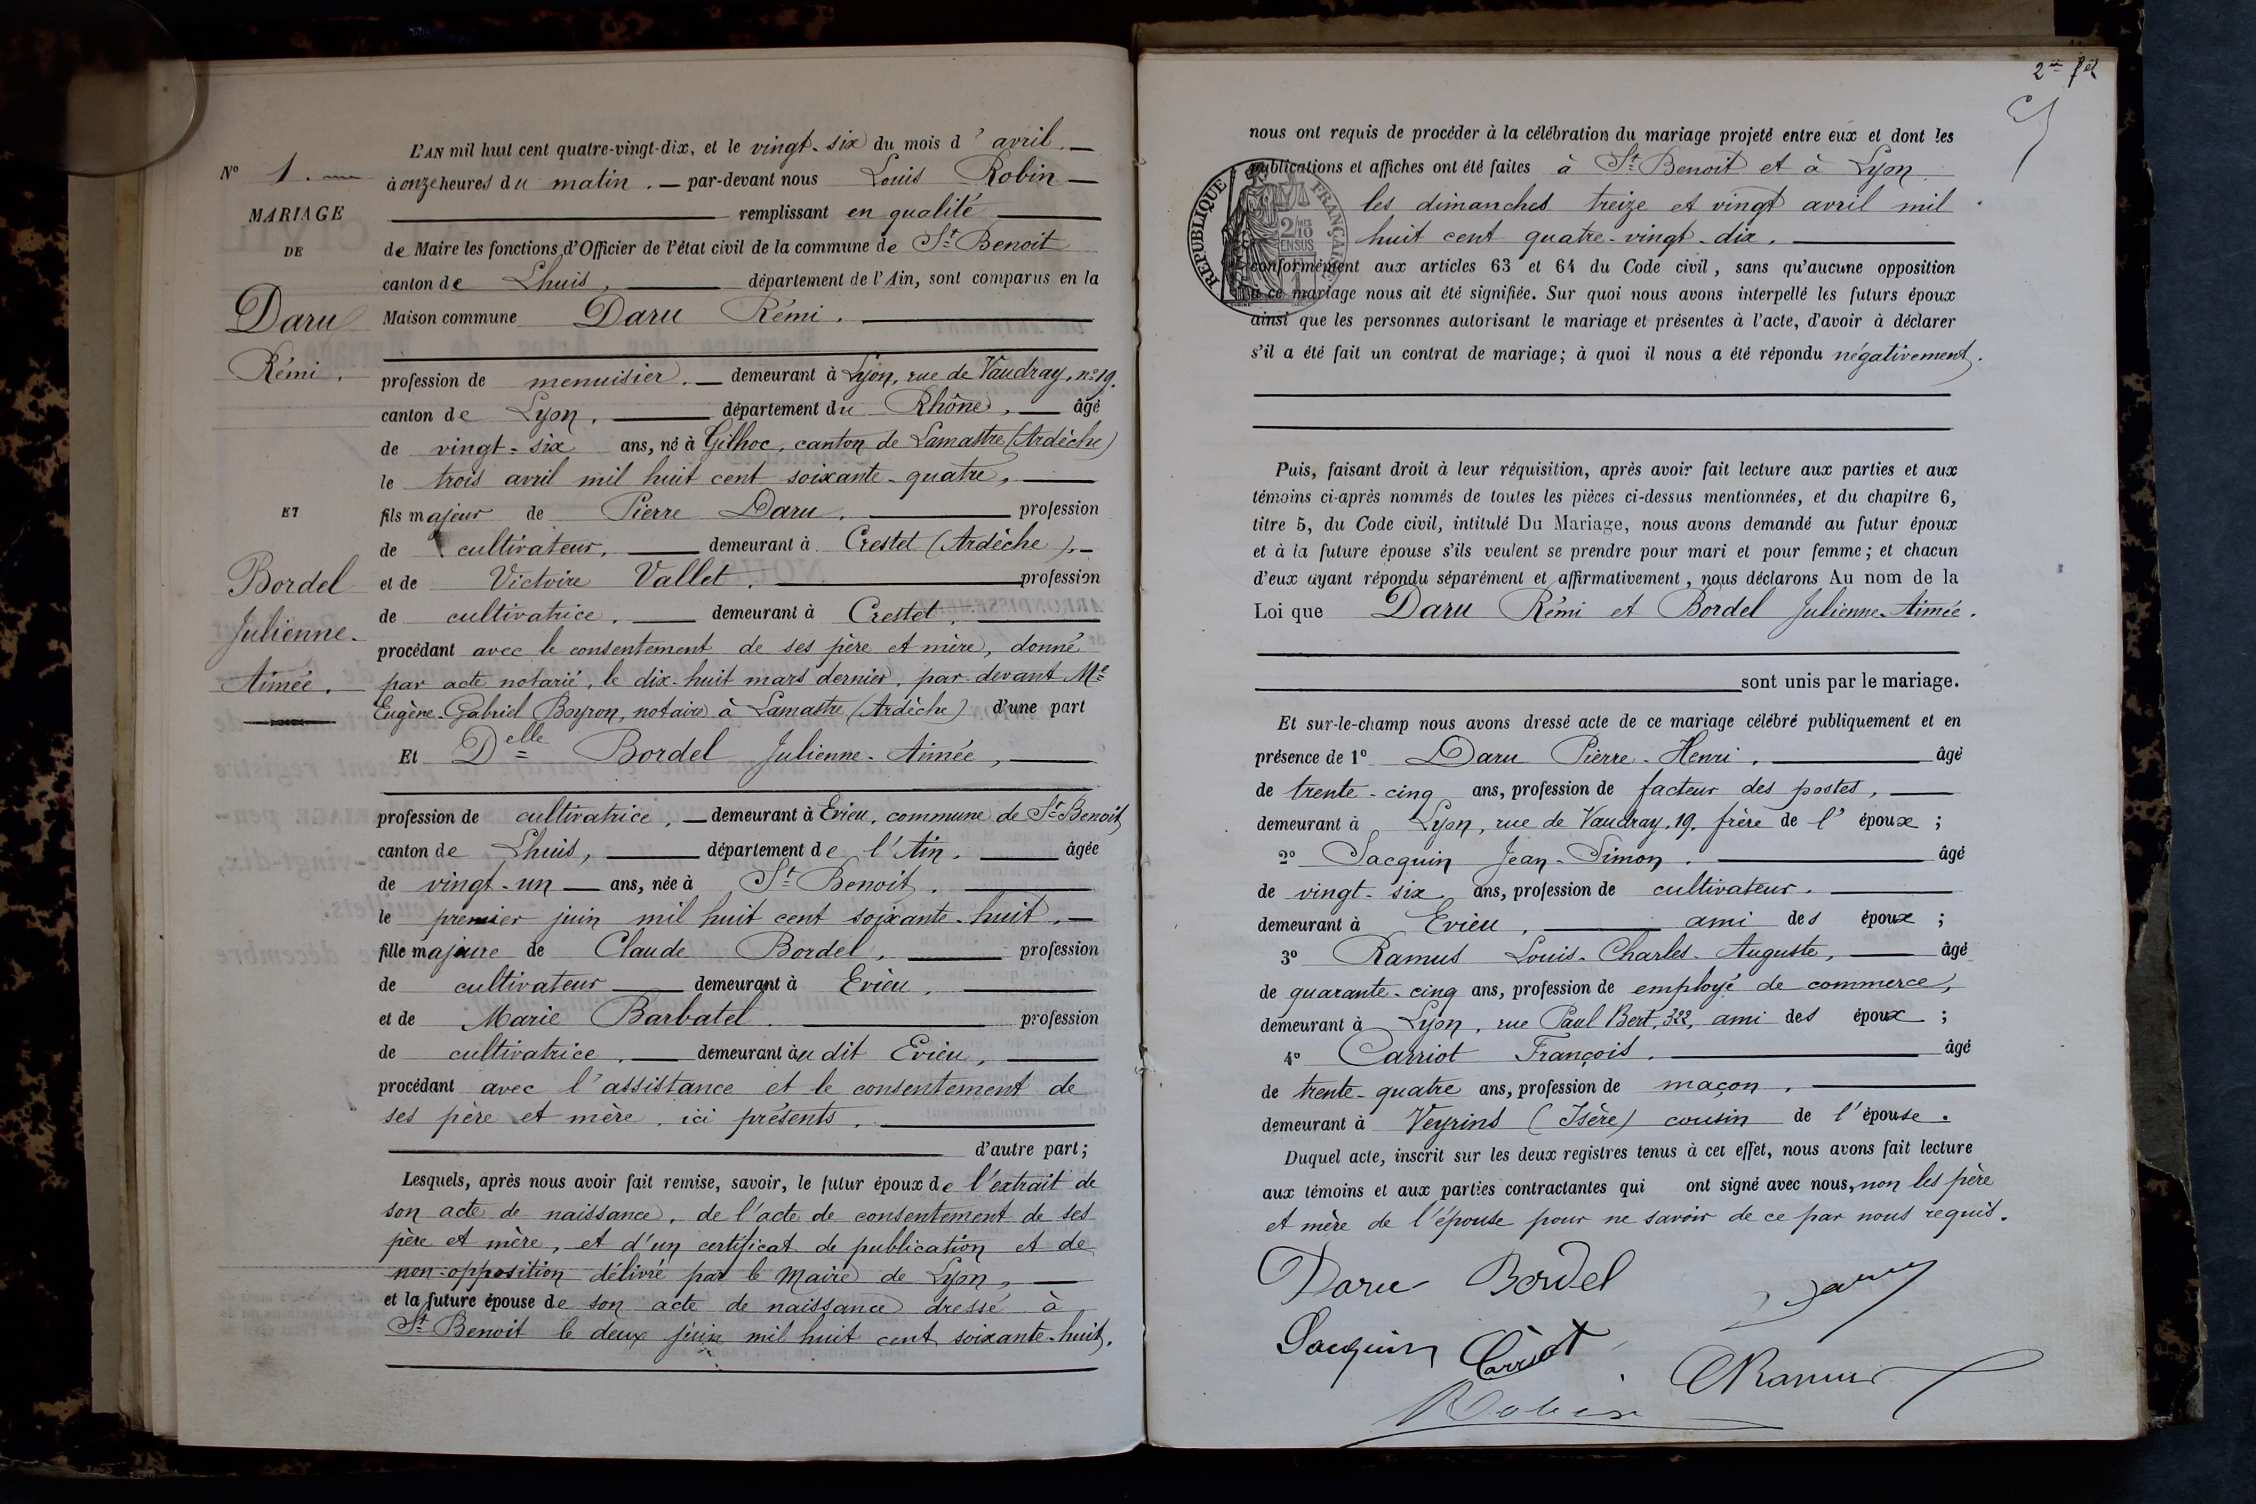 N° 1.
MARIAGE
DE
Daru
Rémi.
ET
Bordel
Julienne-
Aimée.
L'AN mil huit cent quatre-vingt-dix, et le vingt-six du mois d'avril.
à onze heures du matin. par-devant nous Louis Robin
remplissant en qualité
de Maire les fonctions d'Officier de l'état civil de la commune de St Benoit
canton de Lhuis, département de l'Ain, sont comparus en la
Maison commune Daru Rémi.
profession de menuisier. demeurant à Lyon, rue de Vaudray, n° 19.
canton de Lyon. département du Rhône, âgé
de vingt-six ans, né à Gilhoc, canton de Lamastre (Ardèche)
le trois avril mil huit cent soixante-quatre,
fils majeur de Pierre Daru. profession
de cultivateur, demeurant à Crestet (Ardèche),
et de Victoire Vallet. profession
de cultivatrice. demeurant à Crestet,
procédant avec le consentement de ses père et mère, donné
par acte notarié, le dix-huit mars dernier, par-devant Me
Eugène-Gabriel Boyron, notaire à Lamastre (Ardèche) d'une part
Et Delle Bordel Julienne-Aimée,
profession de cultivatrice, demeurant à Evieu, commune de St Benoit,
canton de Lhuis, département de l'Ain. âgée
de vingt-un ans, née à St Benoit.
le premier juin mil huit cent soixante-huit,
fille majeure de Claude Bordel, profession
de cultivateur demeurant à Evieu,
et de Marie Barbatel. profession
de cultivatrice. demeurant au dit Evieu,
procédant avec l'assistance et le consentement de
ses père et mère, ici présents,
d'autre part;
Lesquels, après nous avoir fait remise, savoir, le futur époux de l'extrait de
son acte de naissance, de l'acte de consentement de ses
père et mère, et d'un certificat de publication et de
non-opposition délivré par le Maire de Lyon,
et la future épouse de son acte de naissance dressé à
St Benoit le deux juin mil huit cent soixante-huit.
nous ont requis de procéder à la célébration du mariage projeté entre eux et dont les
publications et affiches ont été faites à St Benoit et à Lyon
les dimanches treize et vingt avril mil
huit cent quatre-vingt-dix,
conformément aux articles 63 et 64 du Code civil, sans qu'aucune opposition
à ce mariage nous ait été signifiée. Sur quoi nous avons interpellé les futurs époux
ainsi que les personnes autorisant le mariage et présentes à l'acte, d'avoir à déclarer
s'il a été fait un contrat de mariage; à quoi il nous a été répondu négativement.
RÉPUBLIQUE FRANÇAISE
2/10
EN SUS
Puis, faisant droit à leur réquisition, après avoir fait lecture aux parties et aux
témoins ci-après nommés de toutes les pièces ci-dessus mentionnées, et du chapitre 6,
titre 5, du Code civil, intitulé Du Mariage, nous avons demandé au futur époux
et à la future épouse s'ils veulent se prendre pour mari et pour femme; et chacun
d'eux ayant répondu séparément et affirmativement, nous déclarons Au nom de la
Loi que Daru Rémi et Bordel Julienne-Aimée.
sont unis par le mariage.
Et sur-le-champ nous avons dressé acte de ce mariage célébré publiquement et en
présence de 1° Daru Pierre-Henri, âgé
de trente-cinq ans, profession de facteur des postes,
demeurant à Lyon, rue de Vaudray, 19. frère de l'époux;
2° Sacquin Jean-Simon. âgé
de vingt-six ans, profession de cultivateur.
demeurant à Evieu, ami des époux;
3° Ramus Louis-Charles-Auguste, âgé
de quarante-cinq ans, profession de employé de commerce,
demeurant à Lyon, rue Paul Bert, 322, ami des époux;
4° Carriot François. âgé
de trente-quatre ans, profession de maçon,
demeurant à Veyrins (Isère) cousin de l'épouse.
Duquel acte, inscrit sur les deux registres tenus à cet effet, nous avons fait lecture
aux témoins et aux parties contractantes qui ont signé avec nous, non les père
et mère de l'épouse pour ne savoir de ce par nous requis.
Daru Bordel Daru
Sacquin Carriot CRamus
Robin